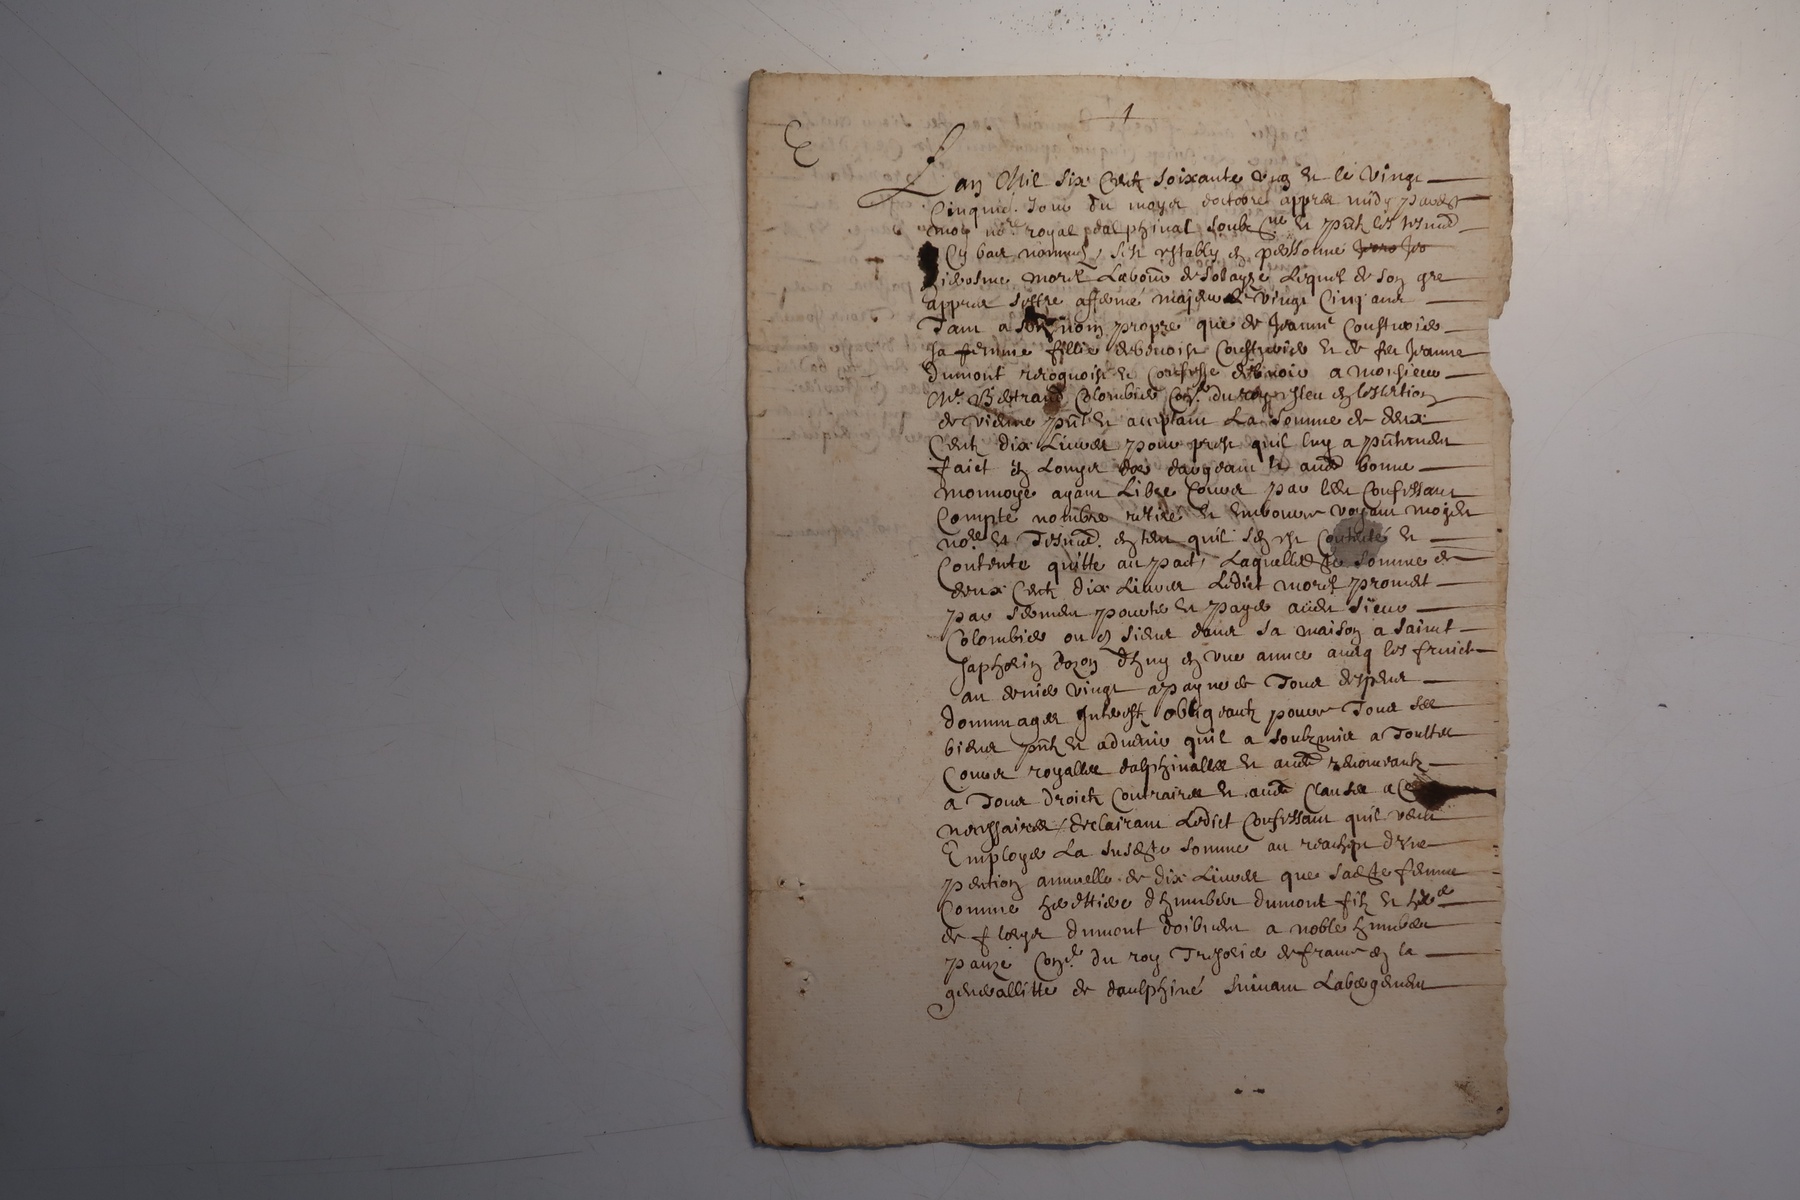 1
Lan Mil six Centz soixante ung et le vingt
Cinquie. Jour du moys doctobre appres midy pardevt
moy nore. royal dalphinal soubzne et pntz les tesmd.
Cy bas nommes, sest estably en personne
morel Labour de Solayze Lequel de son gre
appres sestre affermé majeur de vingt Cinq ans
Tant a son nom propre que de Jeanne
sa femme fillie de benoist et de feu Jeanne
Dumont recognoist et Confesse debvoir a monsieur
Mr. Bertrand Colombier Conr. du roy esleu en leslection
de vienne pnt et aceptant La somme de deux
Centz dix Livres pour prest quil luy a pntement
faict en Louys dor dargeant et autre bonne
monnoye ayant Libre Cours par Led Confessant
Compté nombre retiré et emboursé voyant moyd
nore. et Tesmd. en telle quil sen est Contenté et
Contente quitte au pact, Laquelle dte somme de
deux Centz dix Livres Ledict morel promet
par serment pourter et payer audt sieur
Colombier ou es siens dans sa maison a sainct
Saphorin dozon dhuy en une annee avecq les fruictz
au denier vingt a payne de Tous despens
dommages Interestz obligeantz pour Tous ses
biens pntz et advenir quil a soubzmis a Touttes
Cours royalles dalphinalles et autres renonceantz
a Tous droictz Contraires et autres Clauses a Ce
necessaires, declairant Ledict Confessant quil veut
Employer La susdte somme au reachept dune
pention annuelle de dix Livres que sadte femme
Comme herettiere dhumbert dumont filz et
de dumont doibvent a noble humbert
Conr. du roy Tresorier de france en la
generallitte de daulphiné suivant Labergement